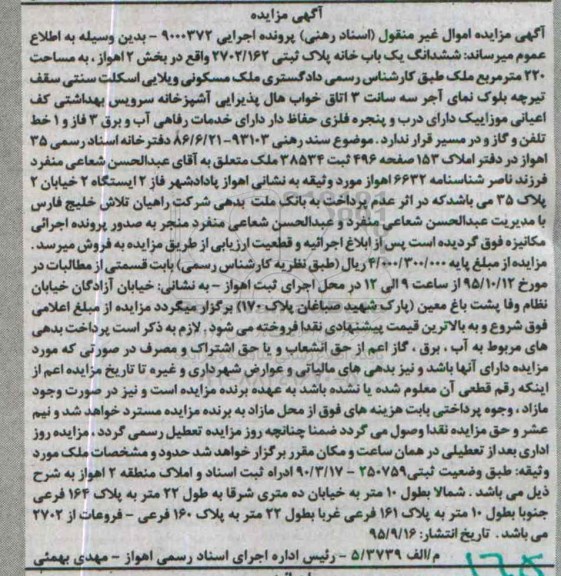 آگهی مزایده
آگهی مزایده اموال غیر منقول (اسناد رهنی) پرونده اجرایی ۹۰۰۰۳۷۲ - بدین وسیله به اطلاع
عموم میرساند: ششدانگ یک باب خانه پلاک ثبتی ۲۷۰۲/۱۶۲ واقع در بخش ۲ اهواز، به مساحت
۲۲۰ مترمربع ملک طبق کارشناس رسمی دادگستری ملک مسکونی ویلایی اسکلت سنتی سقف
تیرچه بلوک نمای آجر سه سانت ۳ اتاق خواب هال پذیرایی آشپزخانه سرویس بهداشتی کف
اعیانی موزاییک دارای درب و پنجره فلزی حفاظ دار دارای خدمات رفاهی آب و برق ۳ فاز و ۱ خط
تلفن و گاز و در مسیر قرار ندارد. موضوع سند رهنی ۹۳۱۰۳-۸۶/۶/۲۱ دفترخانه اسناد رسمی ۳۵
اهواز در دفتر املاک ۱۵۳ صفحه ۴۹۶ ثبت ۳۸۵۳۴ ملک متعلق به آقای عبدالحسن شعاعی منفرد
فرزند ناصر شناسنامه ۶۶۳۲ اهواز مورد وثیقه به نشانی اهواز پادادشهر فاز ۲ ایستگاه ۲ خیابان ۲
پلاک ۳۵ می باشدکه در اثر عدم پرداخت به بانک ملت بدهی شرکت راهیان تلاش خلیج فارس
با مدیریت عبدالحسن شعاعی منفرد و عبدالحسن شعاعی منفرد منجر به صدور پرونده اجرائی
مکانیزه فوق گردیده است پس از ابلاغ اجرائیه و قطعیت ارزیابی از طریق مزایده به فروش میرسد.
مزایده از مبلغ پایه ۴/۰۰۰/۳۰۰/۰۰۰ ریال (طبق نظریه کارشناس رسمی) بابت قسمتی از مطالبات در
مورخ ۹۵/۱۰/۱۲ از ساعت ۹ الی ۱۲ در محل اجرای ثبت اهواز - به نشانی: خیابان آزادگان خیابان
نظام وفا پشت باغ معین (پارک شهید صباغان پلاک ۱۷۰) برگزار میگردد مزایده از مبلغ اعلامی
فوق شروع و به بالاترین قیمت پیشنهادی نقدا فروخته می شود. لازم به ذکر است پرداخت بدهی
های مربوط به آب، برق، گاز اعم از حق انشعاب و یا حق اشتراک و مصرف در صورتی که مورد
مزایده دارای آنها باشد و نیز بدهی های مالیاتی و عوارض شهرداری و غیره تا تاریخ مزایده اعم از
اینکه رقم قطعی آن معلوم شده یا نشده باشد به عهده برنده مزایده است و نیز در صورت وجود
مازاد، وجوه پرداختی بابت هزینه های فوق از محل مازاد به برنده مزایده مسترد خواهد شد و نیم
عشر و حق مزایده نقدا وصول می گردد ضمنا چنانچه روز مزایده تعطیل رسمی گردد، مزایده روز
اداری بعد از تعطیلی در همان ساعت و مکان مقرر برگزار خواهد شد حدود و مشخصات ملک مورد
وثیقه: طبق وضعیت ثبتی۲۵۰۷۵۹ - ۹۰/۳/۱۷ ادراه ثبت اسناد و املاک منطقه ۲ اهواز به شرح
ذیل می باشد. شمالا بطول ۱۰ متر به خیابان ده متری شرقا به طول ۲۲ متر به پلاک ۱۶۴ فرعی
جنوبا بطول ۱۰ متر به پلاک ۱۶۱ فرعی غربا بطول ۲۲ متر به پلاک ۱۶۰ فرعی - فروعات از ۲۷۰۲
می باشد. تاریخ انتشار: ۹۵/۹/۱۶
م/الف ۵/۳۷۳۹ - رئیس اداره اجرای اسناد رسمی اهواز - مهدی بهمئی